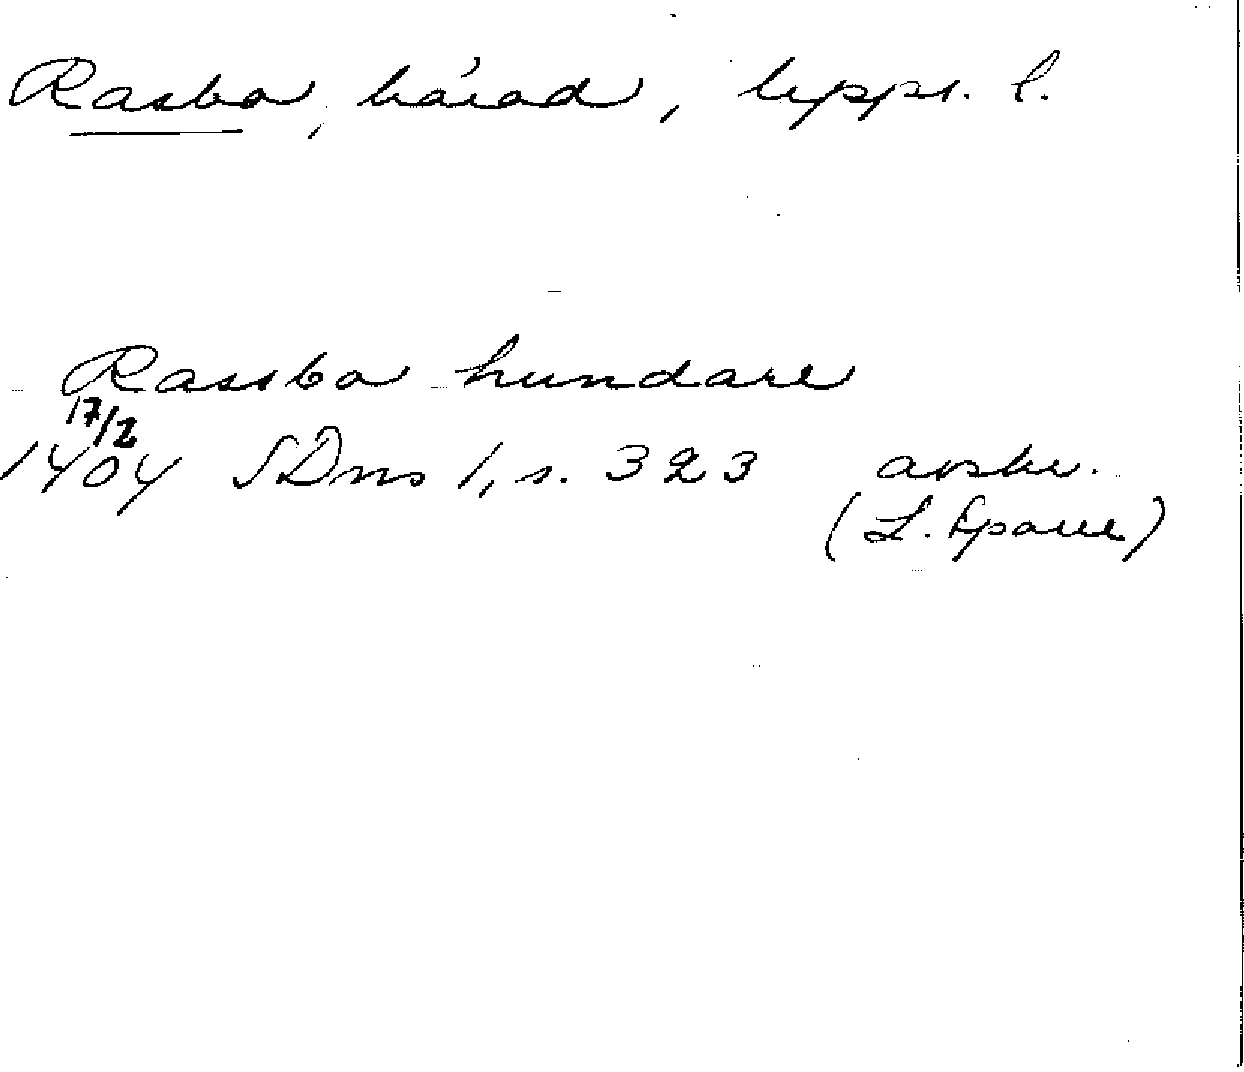 Rasbo, härad, Upps. l.
Rassbo hundare
17/2
1404 SDns 1, s. 323 avskr.
(L. Sparre)